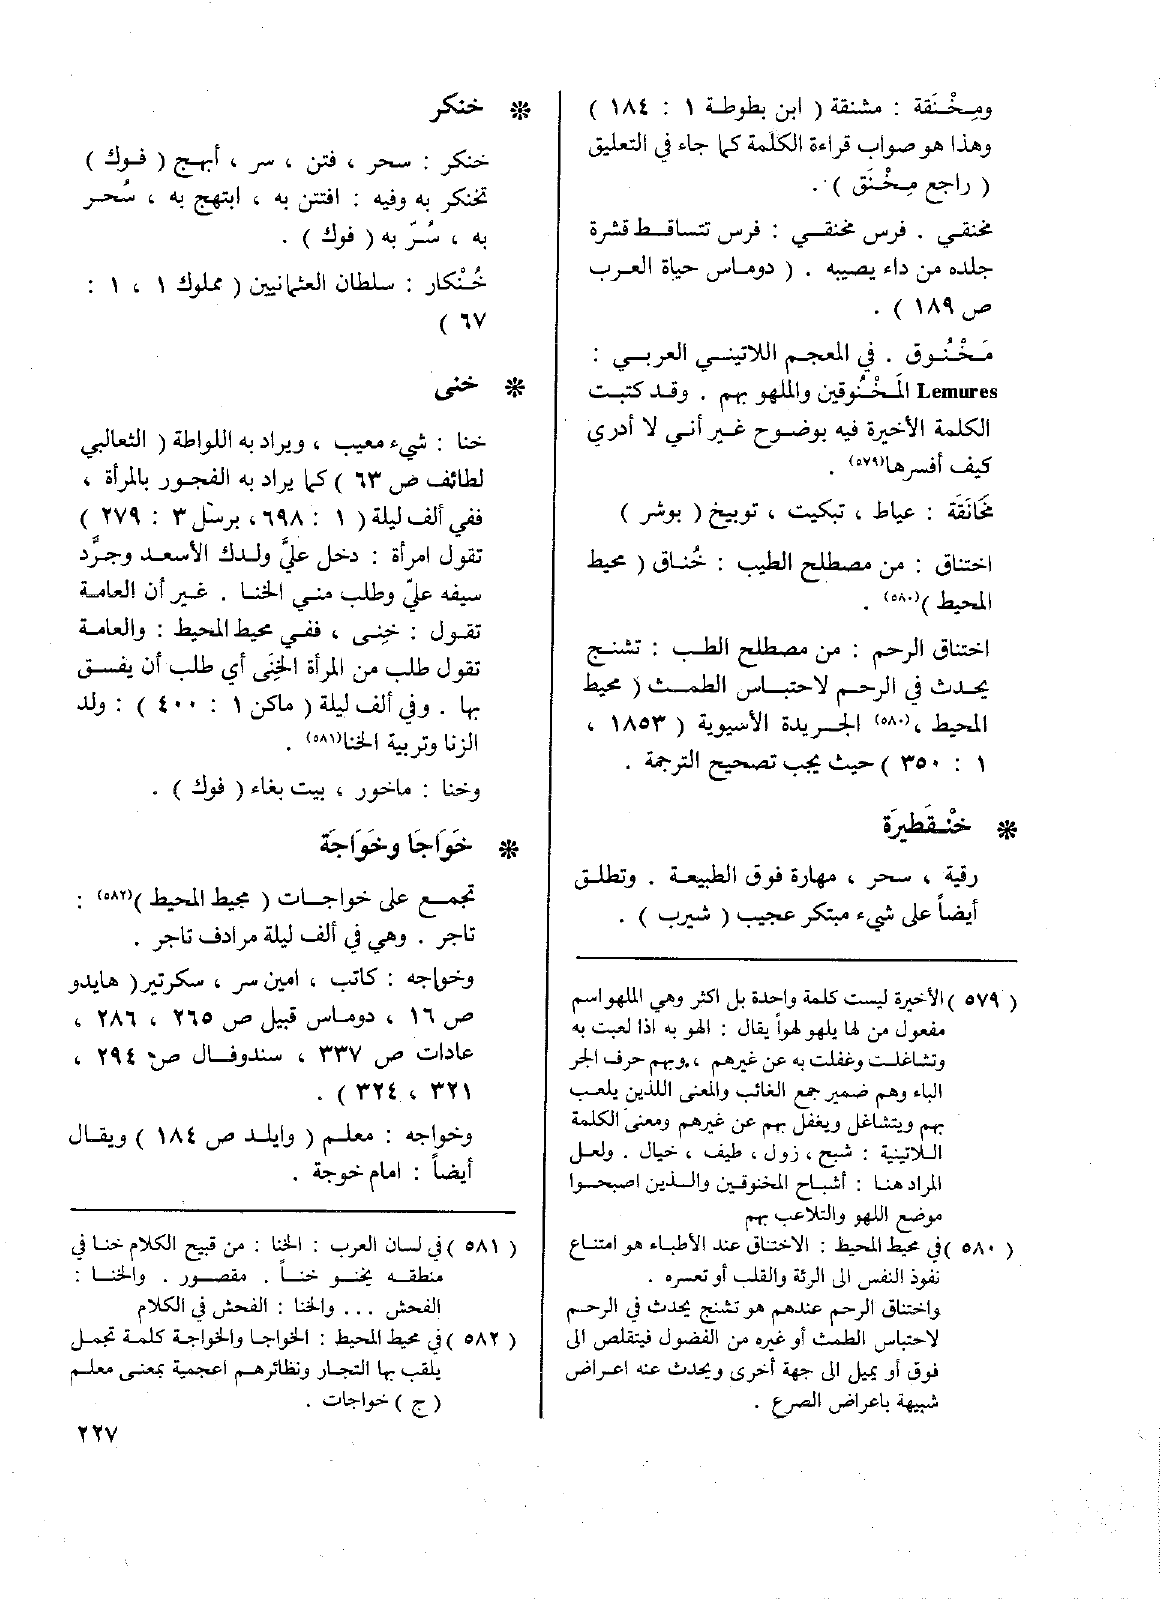 ومِخْنَقة : مشنقة ( ابن بطوطة ١ : ١٨٤ )
وهذا هو صواب قراءة الكلمة كما جاء في التعليق
( راجع مِخْنَق ) .
مخنقي . فرس مخنقي : فرس تتساقط قشرة
جلده من داء يصيبه . ( دوماس حياة العرب
ص ١٨٩ ) .
مَخْنُوق . في المعجم اللاتيني العربي :
Lemures المَخْنُوقين والملهو بهم . وقد كتبت
الكلمة الأخيرة فيه بوضوح غير أني لا أدري
كيف أفسرها(٥٧٩) .
مخَانَقَة : عياط ، تبكيت ، توبيخ ( بوشر )
اختناق : من مصطلح الطيب : خُناق ( محيط
المحيط )(٥٨٠) .
اختناق الرحم : من مصطلح الطب : تشنج
يحدث في الرحم لاحتباس الطمث ( محيط
المحيط ،(٥٨٠) الجريدة الأسيوية ( ١٨٥٣ ،
١ : ٣٥٠ ) حيث يجب تصحيح الترجمة .
* خنْقَطِيرَة
رقية ، سحر ، مهارة فوق الطبيعة . وتطلق
أيضاً على شيء مبتكر عجيب ( شيرب ) .
( ٥٧٩ ) الأخيرة ليست كلمة واحدة بل اكثر وهي الملهو اسم
مفعول من لها يلهو لهواً يقال : الهو به اذا لعبت به
وتشاغلت وغفلت به عن غيرهم ، وبهم حرف الجر
الباء وهم ضمير جمع الغائب والمعنى اللذين يلعب
بهم ويتشاغل ويغفل بهم عن غيرهم ومعنى الكلمة
اللاتينية : شبح ، زول ، طيف ، خيال . ولعل
المراد هنا : أشباح المخنوقين والذين اصبحوا
موضع اللهو والتلاعب بهم
( ٥٨٠ ) في محيط المحيط : الاختناق عند الأطباء هو امتناع
نفوذ النفس الى الرئة والقلب أو تعسره .
واختناق الرحم عندهم هو تشنج يحدث في الرحم
لاحتباس الطمث أو غيره من الفضول فيتقلص الى
فوق أو يميل الى جهة أخرى ويحدث عنه اعراض
شبيهة باعراض الصرع .
* خنكر
خنكر : سحر ، فتن ، سر ، أبهج ( فوك )
تخنكر به وفيه : افتتن به ، ابتهج به ، سُحر
به ، سُرّ به ( فوك ) .
خُنْكار : سلطان العثمانيين ( مملوك ١ ، ١ :
٦٧ )
* خنى
خنا : شيء معيب ، ويراد به اللواطة ( الثعالبي
لطائف ص ٦٣ ) كما يراد به الفجور بالمرأة ،
ففي ألف ليلة ( ١ : ٦٩٨ ، برسل ٣ : ٢٧٩ )
تقول امرأة : دخل عليَّ ولدك الأسعد وجرَّد
سيفه عليّ وطلب مني الخنا . غير أن العامة
تقول : خِنى ، ففي محيط المحيط : والعامة
تقول طلب من المرأة الخِنَى أي طلب أن يفسق
بها . وفي ألف ليلة ( ماكن ١ : ٤٠٠ ) : ولد
الزنا وتربية الخنا(٥٨١) .
وخنا : ماخور ، بيت بغاء ( فوك ) .
* خَوَاجَا وخَوَاجَة
تجمع على خواجات ( محيط المحيط )(٥٨٢) :
تاجر . وهي في ألف ليلة مرادف تاجر .
وخواجه : كاتب ، امين سر ، سكرتير ( هايدو
ص ١٦ ، دوماس قبيل ص ٢٦٥ ، ٢٨٦ ،
عادات ص ٣٣٧ ، سندوفال ص ٢٩٤ ،
٣٢١ ، ٣٢٤ ) .
وخواجه : معلم ( وايلد ص ١٨٤ ) ويقال
أيضاً : امام خوجة .
( ٥٨١ ) في لسان العرب : الخنا : من قبيح الكلام خنا في
منطقه يخنو خناً . مقصور . والخنا :
الفحش ... والخنا : الفحش في الكلام
( ٥٨٢ ) في محيط المحيط : الخواجا والخواجة كلمة تجمل
يلقب بها التجار ونظائرهم اعجمية بمعنى معلم
( ج ) خواجات .
٢٢٧